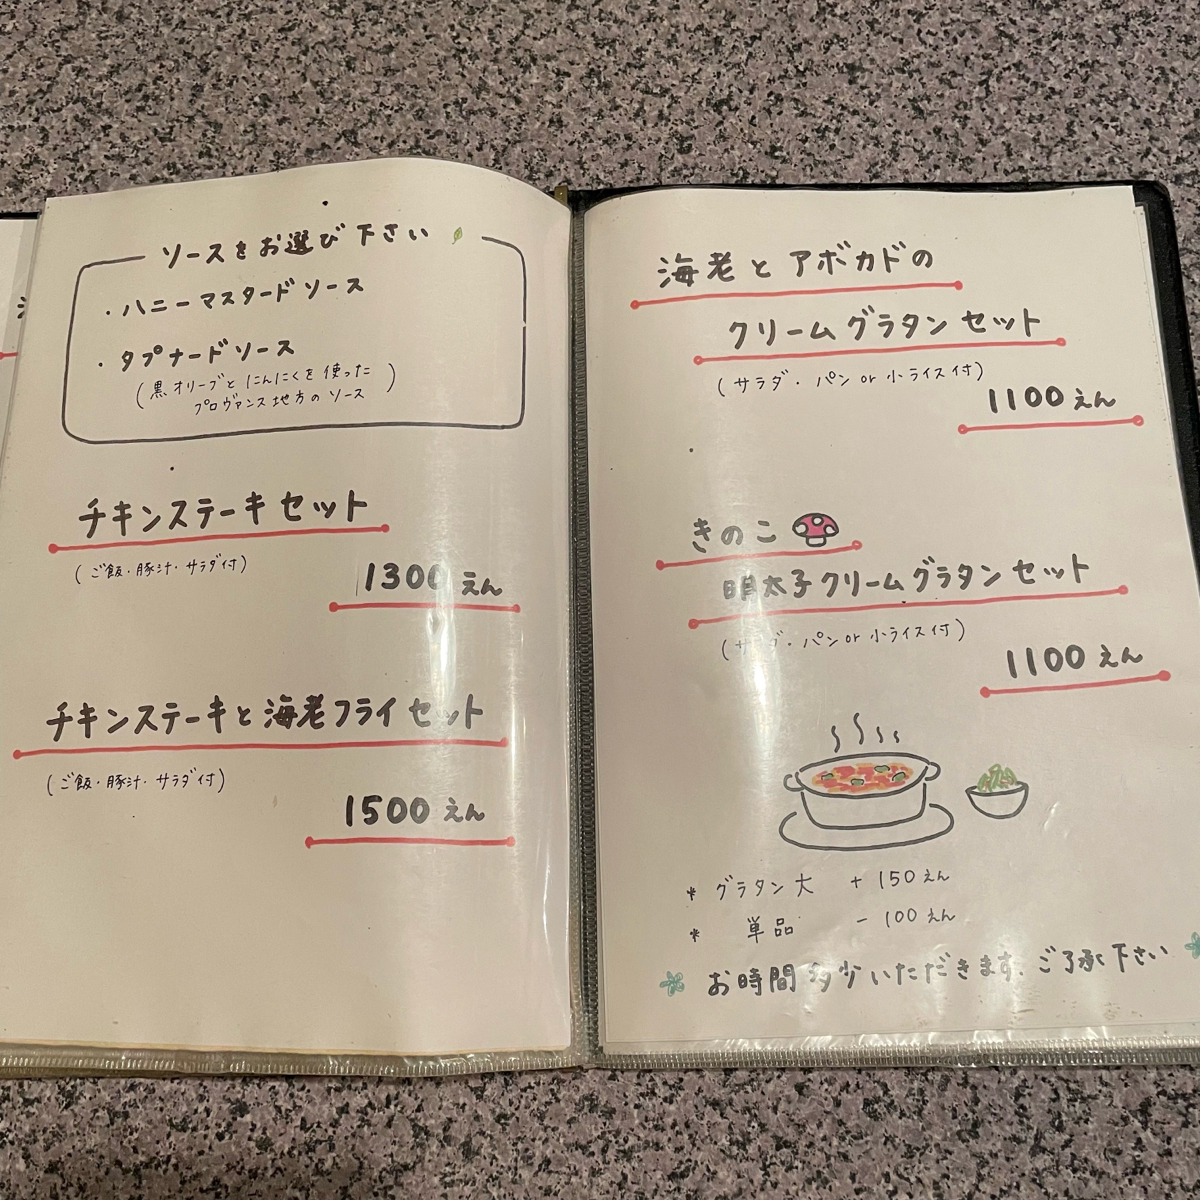 ソースをお選び下さい
・ハニーマスタードソース
・タプナードソース
(黒オリーブとにんにくを使った
プロヴァンス地方のソース)
チキンステーキセット
(ご飯・豚汁・サラダ付)
1300えん
チキンステーキと海老フライセット
(ご飯・豚汁・サラダ付)
1500えん
海老とアボカドの
クリームグラタンセット
(サラダ・パンor小ライス付)
1100えん
きのこ
明太子クリームグラタンセット
(サラダ・パンor小ライス付)
1100えん
* グラタン大 +150えん
* 単品 -100えん
お時間多少いただきます。ご了承下さい